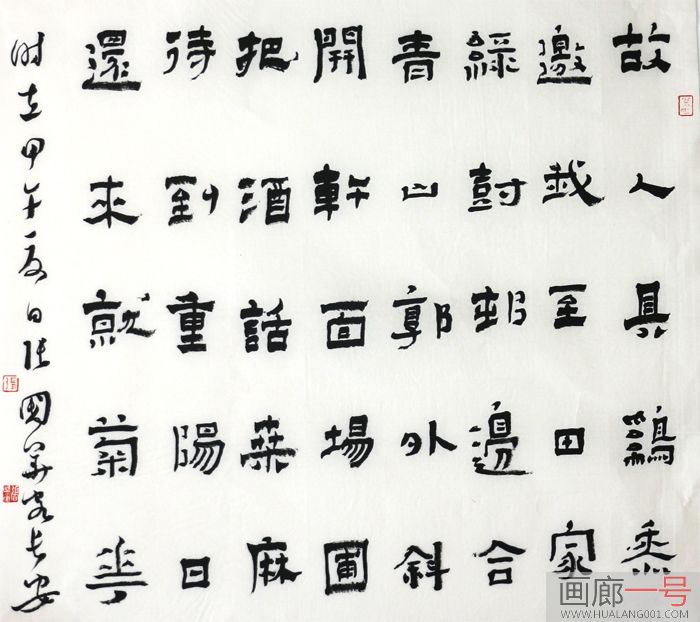 故人具鷄黍
邀我至田家
綠樹邨邊合
青山郭外斜
開軒面場圃
把酒話桑麻
待到重陽日
還來就菊花
时在甲午夏日张國华长安
画廊一号
WWW.HUALANG001.COM